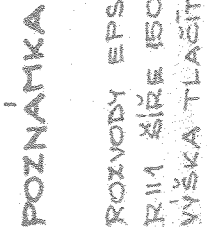 POZNÁMKA
ROZVODY EPS
R 1M ŠÍŘE
VÝŠKA TLAČIT